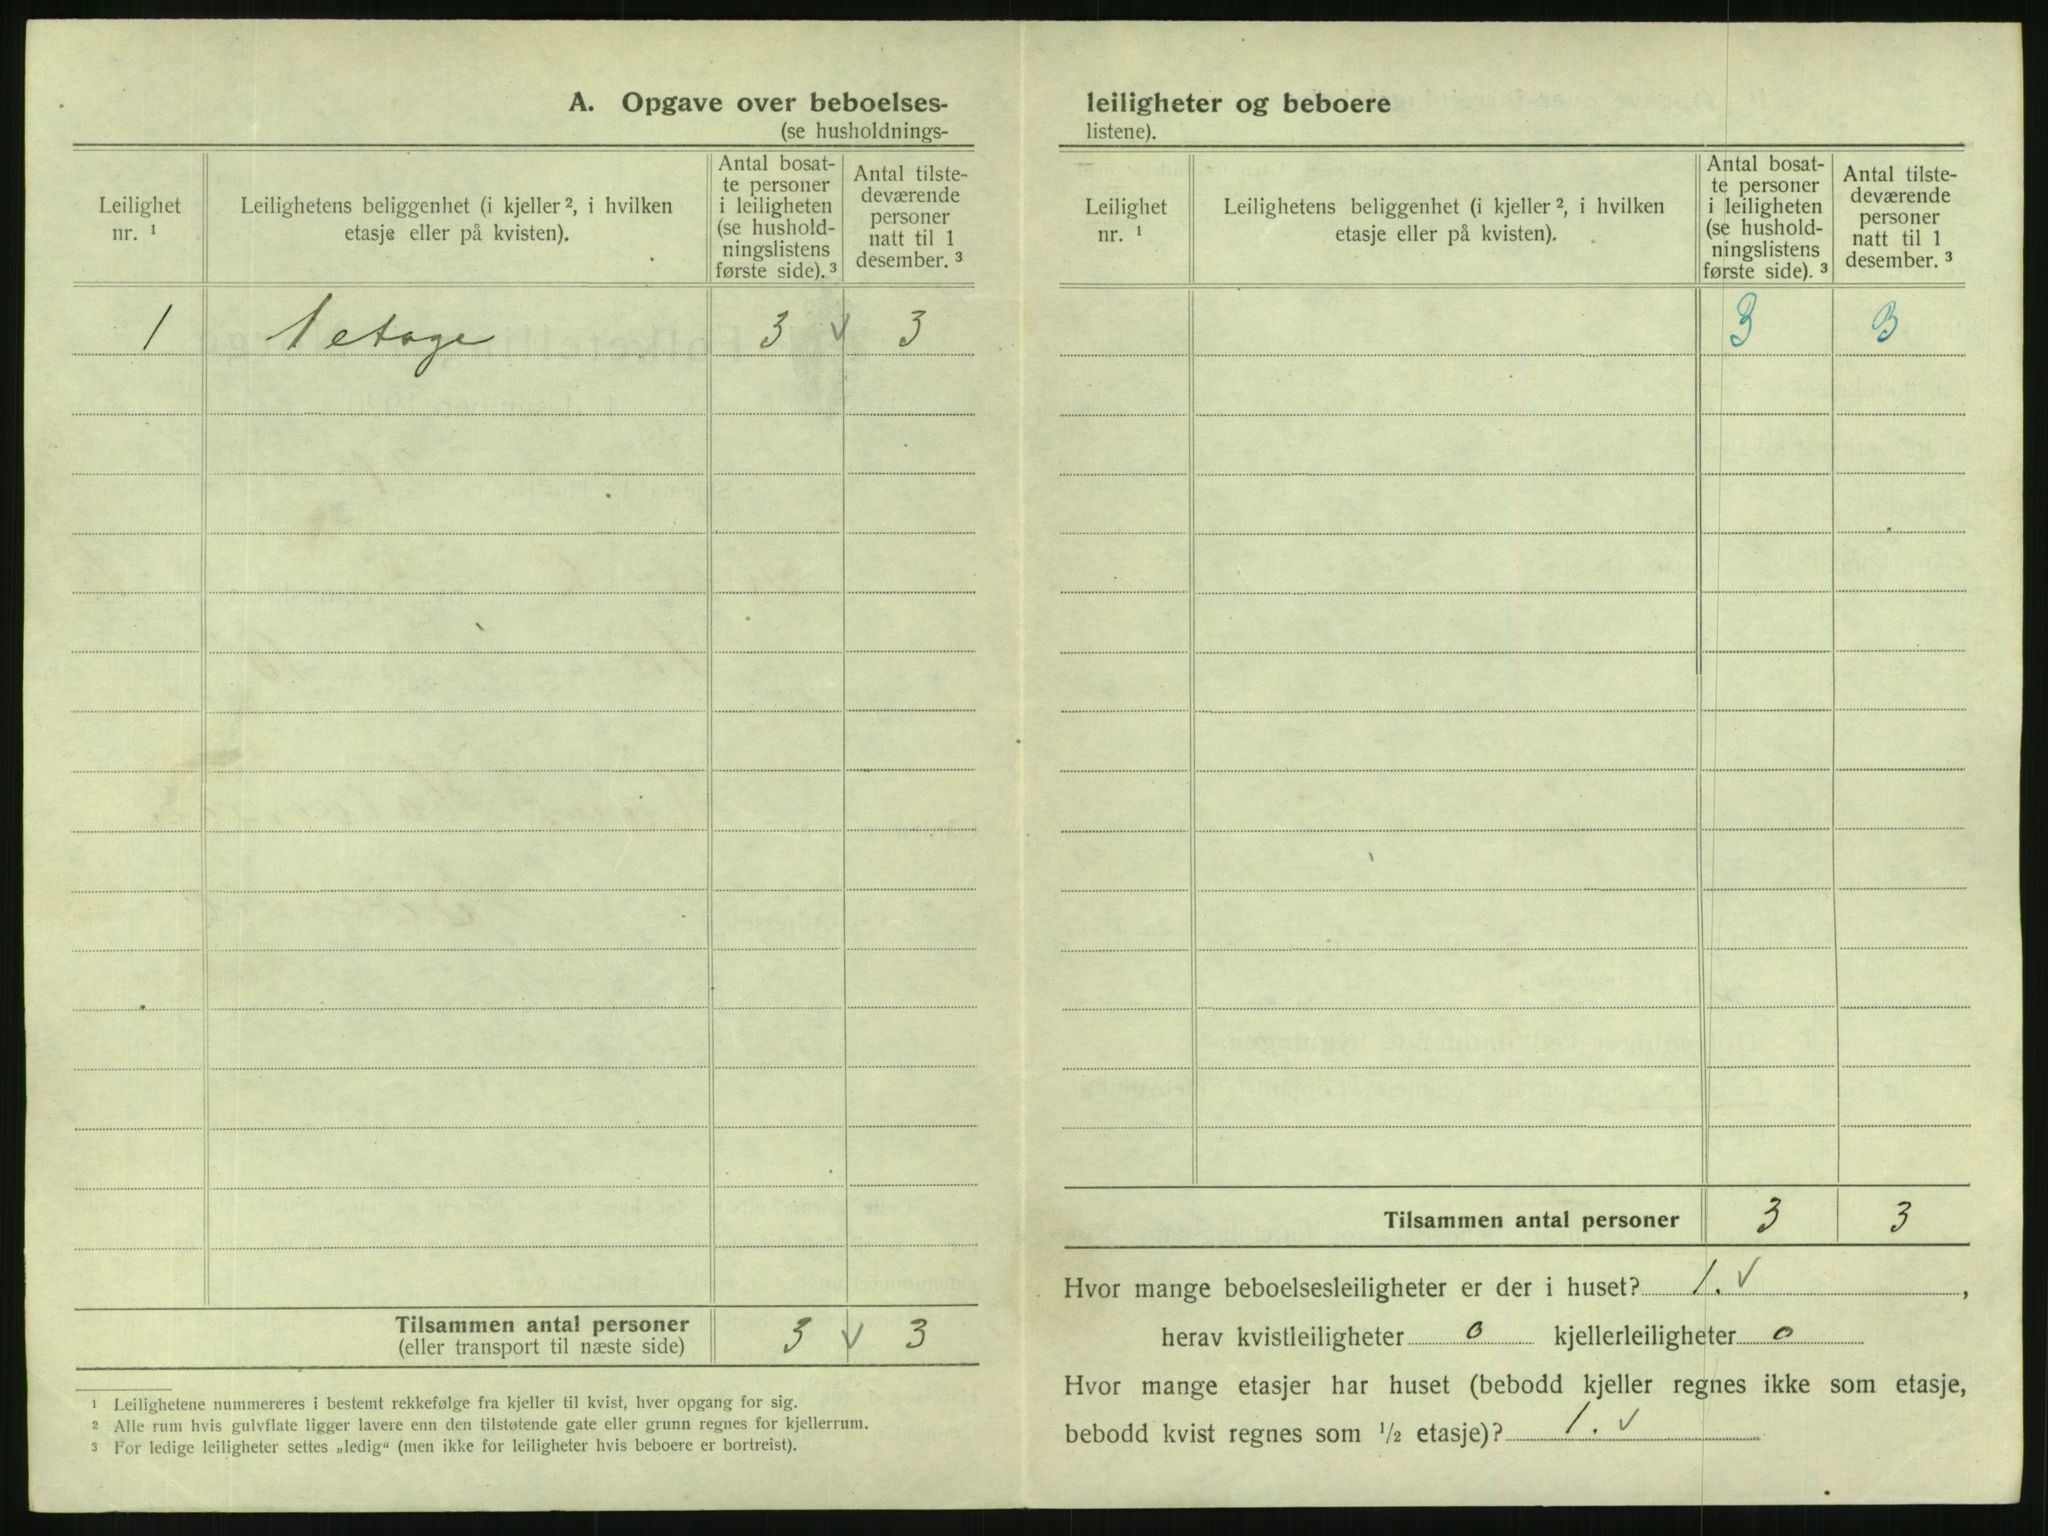 A. Opgave over beboelses-
(se husholdnings-
Leilighet
nr. 1
Leilighetens beliggenhet (i kjeller 2, i hvilken
etasje eller på kvisten).
Antal bosat-
te personer
i leiligheten
(se hushold-
ningslistens
første side). 3
Antal tilste-
deværende
personer
natt til 1
desember. 3
1 1 etage 3 v 3
Tilsammen antal personer 3 v 3
(eller transport til næste side)
1 Leilighetene nummereres i bestemt rekkefølge fra kjeller til kvist, hver opgang for sig.
2 Alle rum hvis gulvflate ligger lavere enn den tilstøtende gate eller grunn regnes for kjellerrum.
3 For ledige leiligheter settes „ledig“ (men ikke for leiligheter hvis beboere er bortreist).
leiligheter og beboere
listene).
Leilighet
nr. 1
Leilighetens beliggenhet (i kjeller 2, i hvilken
etasje eller på kvisten).
Antal bosat-
te personer
i leiligheten
(se hushold-
ningslistens
første side). 3
Antal tilste-
deværende
personer
natt til 1
desember. 3
3 3
Tilsammen antal personer 3 3
Hvor mange beboelsesleiligheter er der i huset? 1. v ,
herav kvistleiligheter 0 kjellerleiligheter 0
Hvor mange etasjer har huset (bebodd kjeller regnes ikke som etasje,
bebodd kvist regnes som 1/2 etasje)? 1. v